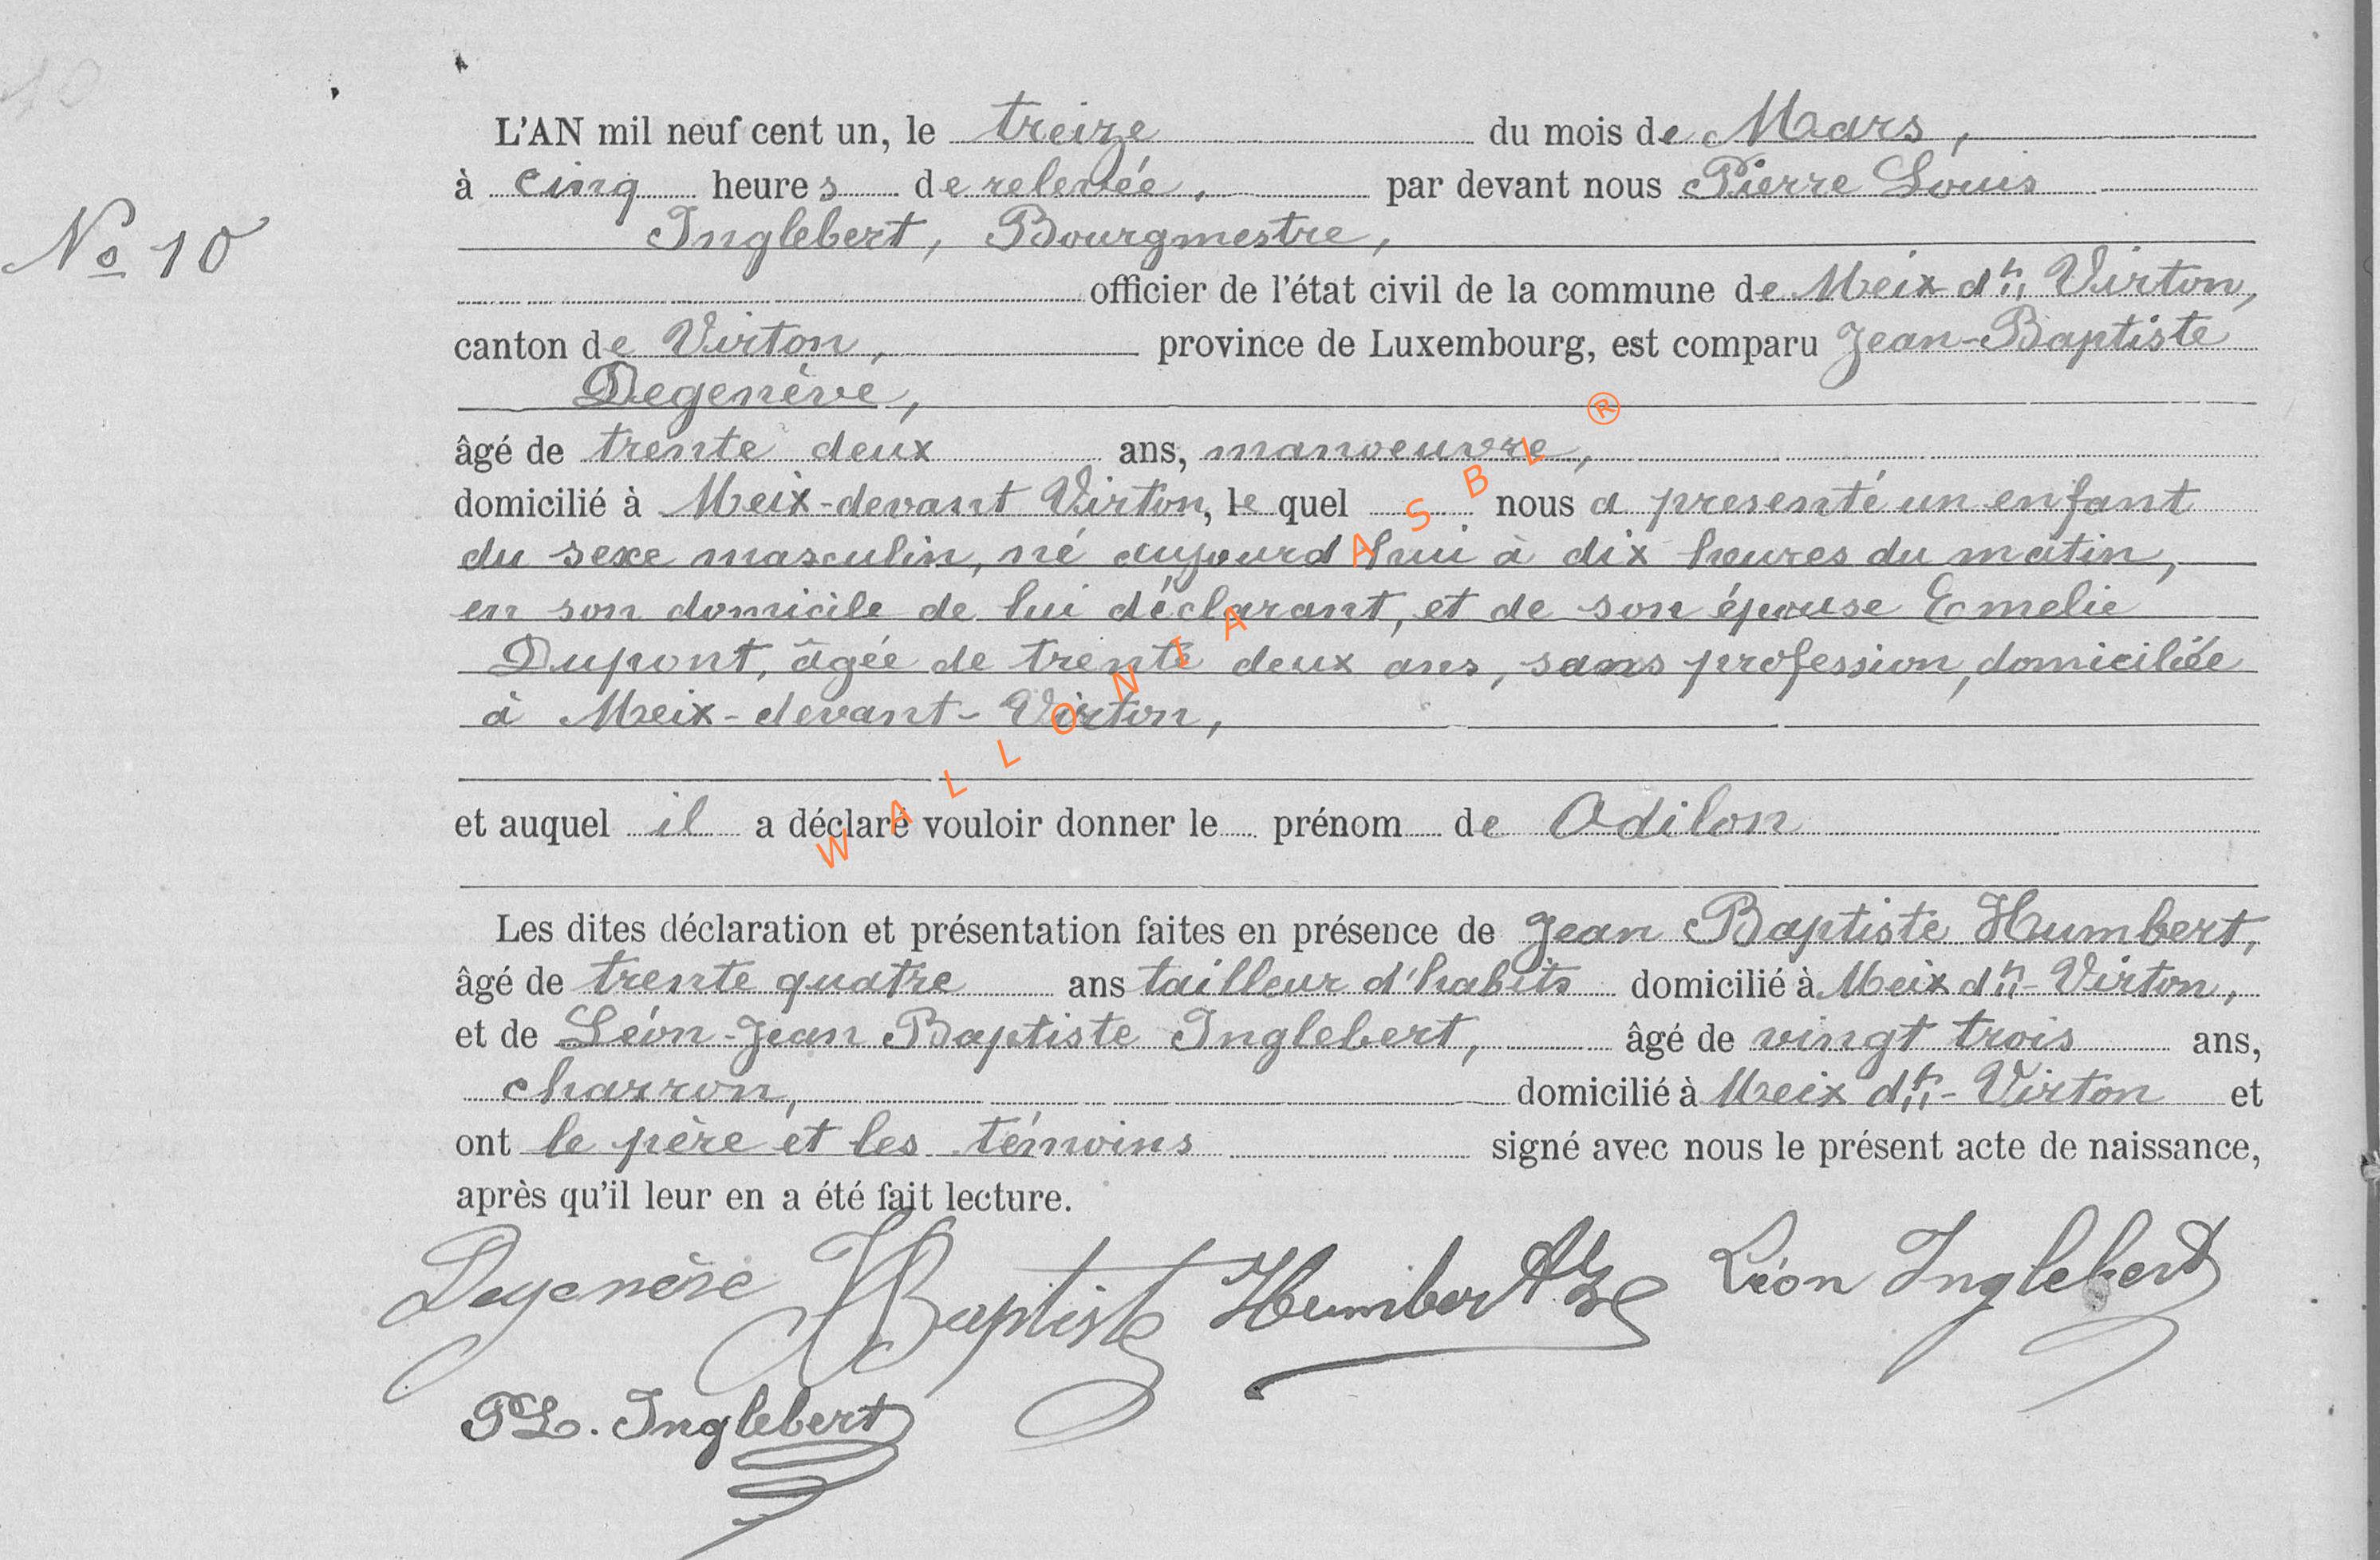 L'AN mil neuf cent un, le treize du mois de Mars,
à cinq heures de relevée, par devant nous Pierre Louis
No 10
Inglebert, Bourgmestre,
officier de l'état civil de la commune de Meix dt Virton,
canton de Virton, province de Luxembourg, est comparu Jean-Baptiste
Degenève,
âgé de trente deux ans, manoeuvre,
domicilié à Meix-devant Virton, le quel nous a presenté un enfant
du sexe masculin, né aujourd'hui à dix heures du matin,
en son domicile de lui déclarant, et de son épouse Emelie
Dupont, âgée de trente deux ans, sans profession, domiciliée
à Meix-devant-Virton,
et auquel il a déclaré vouloir donner le prénom de Odilon
Les dites déclaration et présentation faites en présence de Jean Baptiste Humbert,
âgé de trente quatre ans tailleur d'habits domicilié à Meix dt-Virton,
et de Léon-Jean Baptiste Inglebert, âgé de vingt trois ans,
charron, domicilié à Meix dt-Virton et
ont le père et les témoins signé avec nous le présent acte de naissance,
après qu'il leur en a été fait lecture.
Degenève JBaptiste Humbert Léon Inglebert
PL. Inglebert
WALLONIA ASBL ®